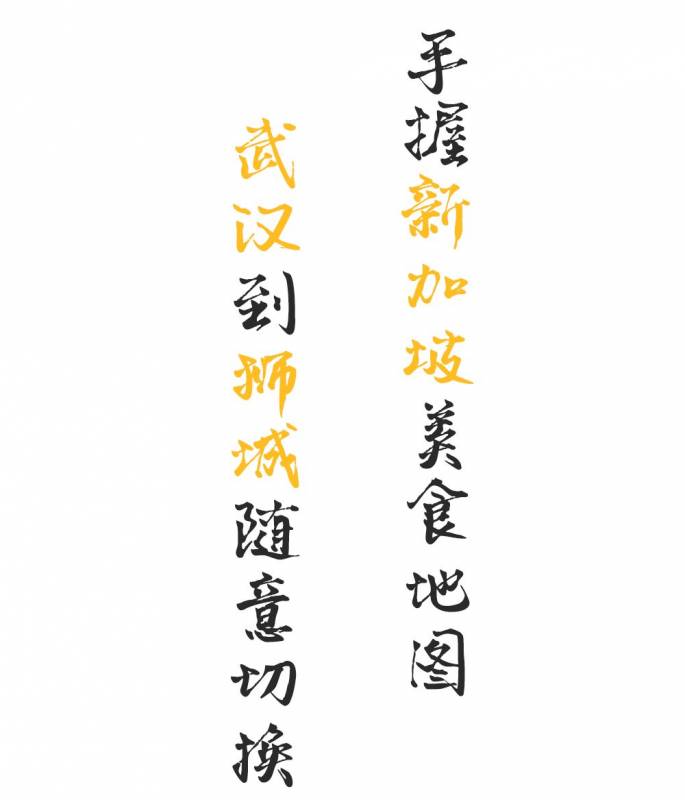 手握新加坡美食地图
武汉到狮城随意切换